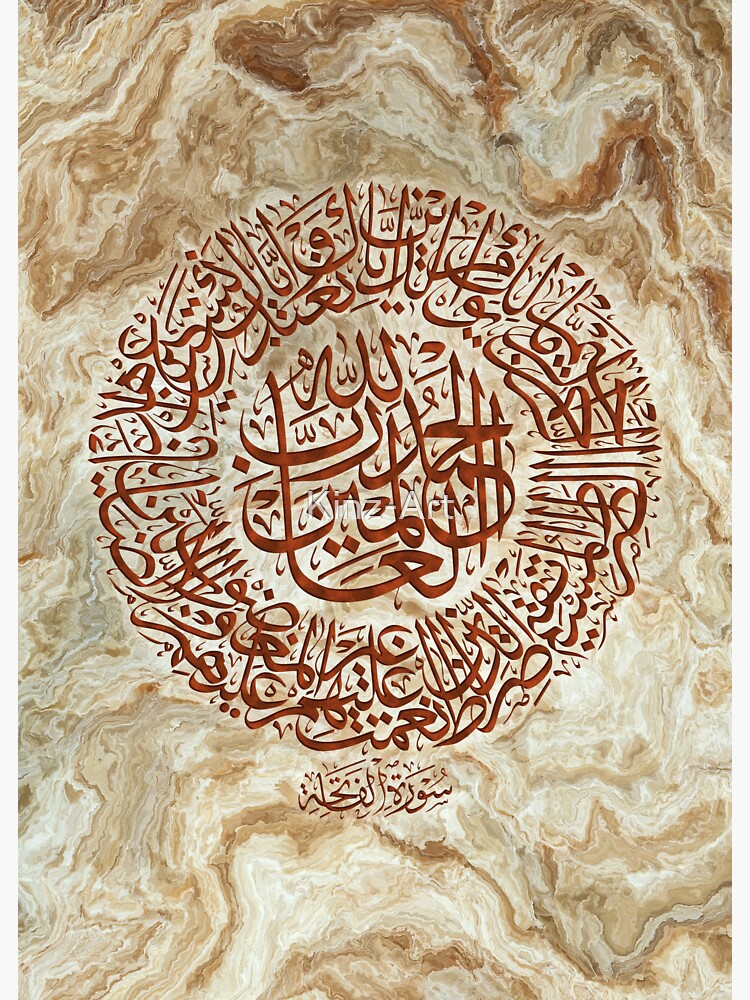 الحمد لله رب العالمين
الرحمن الرحيم مالك يوم الدين إياك نعبد وإياك نستعين اهدنا الصراط المستقيم صراط الذين أنعمت عليهم غير المغضوب عليهم ولا الضالين
Kinz-Art
سورة الفاتحة